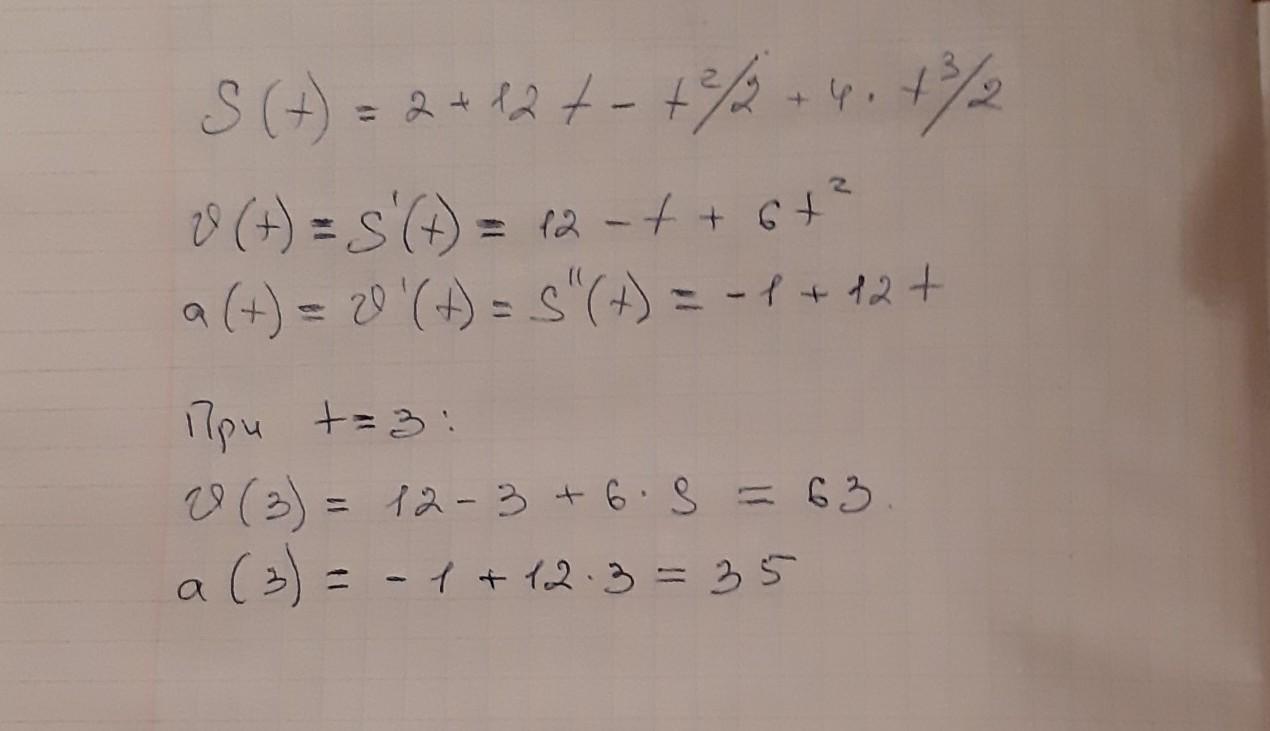 S(t) = 2 + 12t - t²/2 + 4 · t³/2
v(t) = S'(t) = 12 - t + 6t²
a(t) = v'(t) = S''(t) = -1 + 12t
При t = 3:
v(3) = 12 - 3 + 6 · 9 = 63.
a(3) = -1 + 12 · 3 = 35